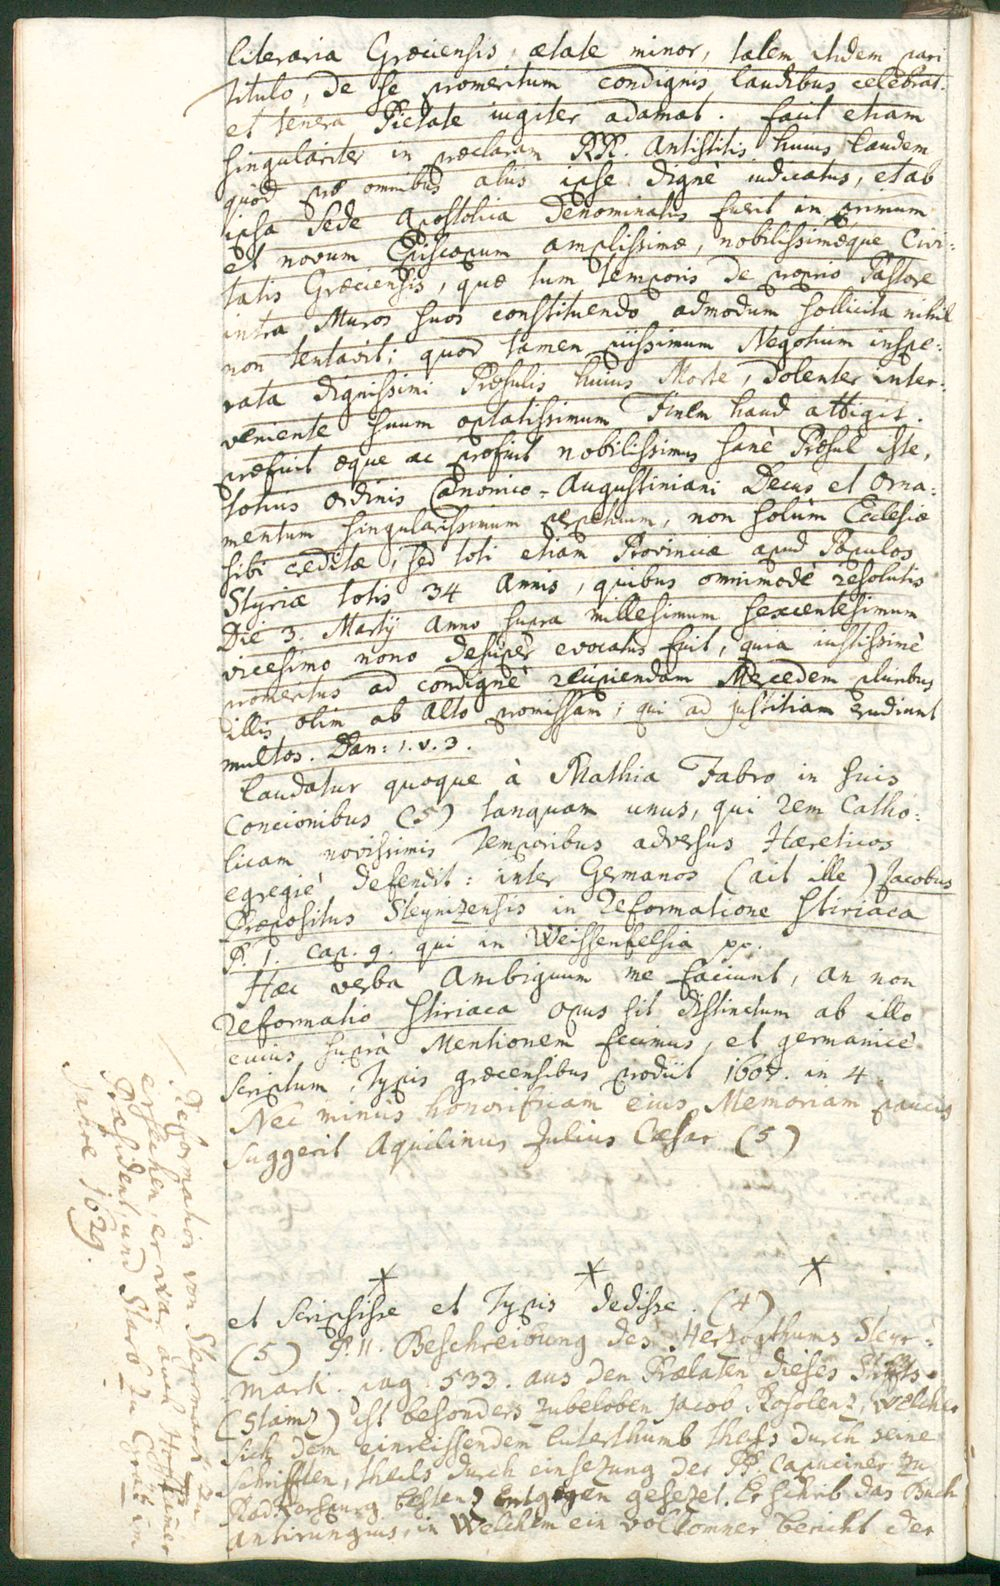 literaria Græciensis, ætate minor, talem itidem pari
titulo, de se promeritum condignis laudibus celebrat.
et tenera Pietate iugiter adamat. facit etiam
singulariter in præclaram RR. Antistitis huius laudem
quòd præ omnibus aliis ipse dignè iudicatus, et ab
ipsa Sede Apostolica Denominatus fuerit in primum
et novum Episcopum amplissimæ, nobilissimæque Civi=
tatis Græciensis, quæ tum temporis de proprio Pastore
intra Muros suos constituendo admodum sollicita nihil
non tentavit; quod tamen piissimum Negotium inspe=
rata dignissimi Præsulis huius Morte, dolenter inter=
veniente suum optatissimum Finem haud attigit.
præfuit æque ac profuit nobilissimus sanè Præsul iste,
totius ordinis Canonico-Augustiniani Decus et Orna=
mentum singularissimum perpetuum, non solùm Ecclesiæ
sibi creditæ, sed toti etiam Provinciæ apud Populos
Styriæ totis 34 Annis, quibus omnimodè resolutis
Die 3. Martij Anno supra millesimum sexcentesimum
vicesimo nono desuper evocatus fuit, quia iustissimè
promeritus ad condignè recipiendam Mercedem pluribus
illis olim ab Alto promissam; qui ad justitiam erudiunt
multos. Dan: 1. v. 3.
Laudatur quoque à Mathia Fabro in suis
Concionibus (5) tanquam unus, qui rem Catho=
licam novissimis Temporibus adversus Hæreticos
egregiè defendit: inter Germanos (ait ille) Jacobus
Præpositus Steynizensis in Reformatione Stiriaca
P. 1. Cap. 9. qui in Weissenfelsia pp.
Hæc verba Ambiguum me faciunt, an non
Reformatio Stiriaca opus sit distinctum ab illo
cuius suprà Mentionem fecimus, et germanicè
Scriptum Typis græcensibus prodiit 1607. in 4.
Nec minus honorificam eius Memoriam paucis
suggerit Aquilinus Julius Cæsar (5)
et scripsisse et Typis dedisse. (4)
(5) P. II. Beschreibung des Herzogthums Steyr=
mark. pag. 533. aus den Prælaten dieses Stifts
(Stainz) ist besonders zubeloben Jacob Rosolenz, welcher
sich dem einreissendem luterthumb theils durch seine
Schrifften, theils durch einsezung der PP. Capuciner zu
Radkerspurg bestens entgegen gesezet. Er schrib das Buch
antirungius, in Welchem ein volkomner bericht der
/ Reformation von Steyrmarck zu
ersehen, er war auch Hofkamer
Præsident und Starb zu Grätz im
Jahre 1629.